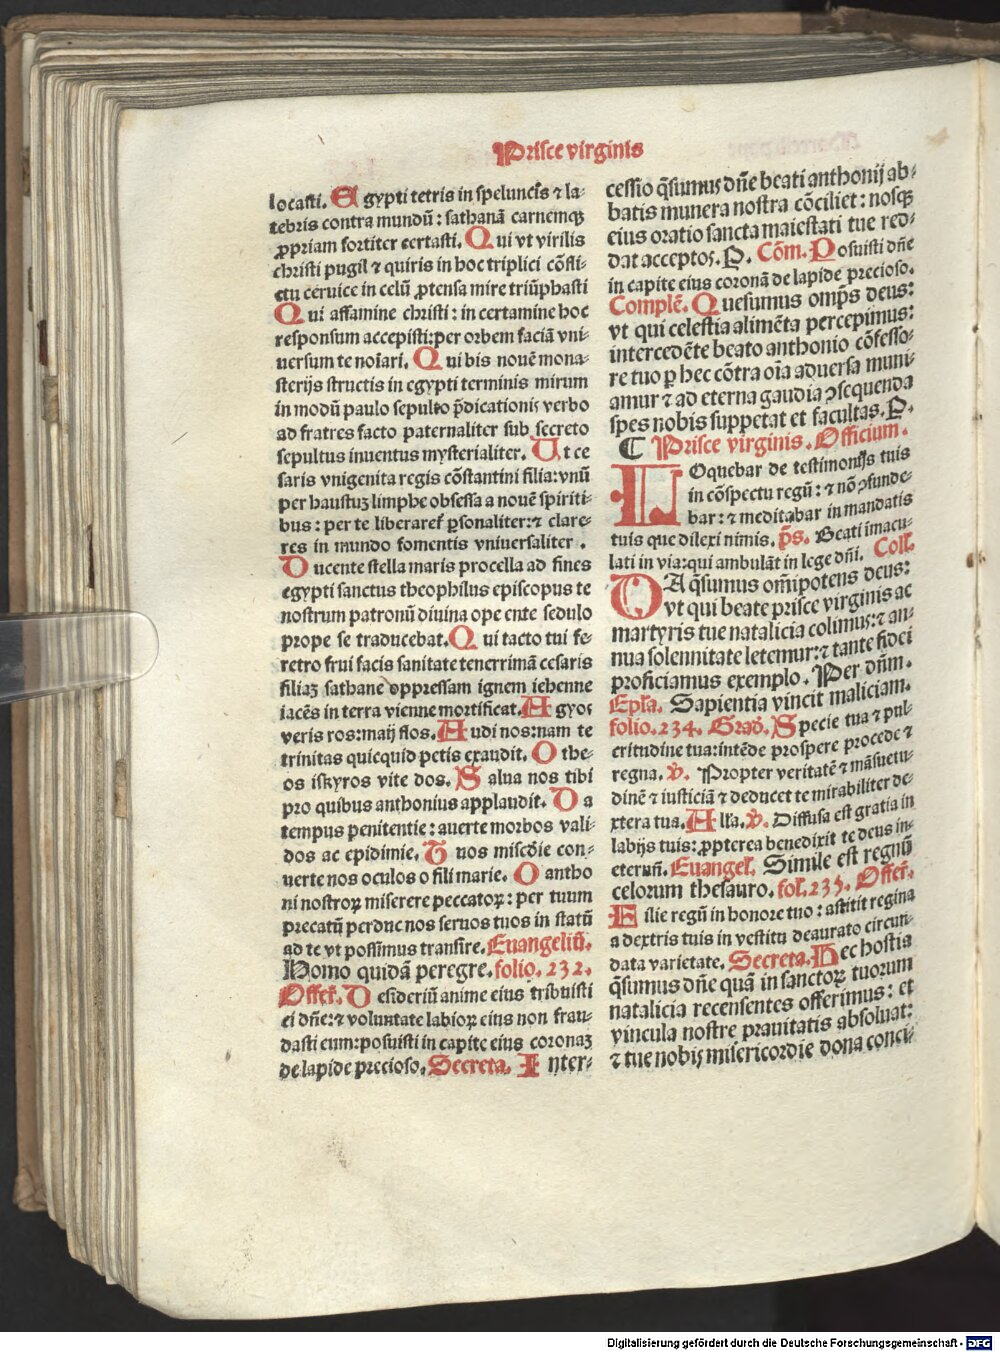 Prisce virginis
locasti. Egypti tetris in speluncis ⁊ la-
tebris contra mundū: sathanā carnemqꝫ
ꝓpriam fortiter certasti. Qui vt virilis
christi pugil ⁊ quiris in hoc triplici cōfli-
ctu ceruice in celū ꝓtensa mire triūphasti
Qui affamine christi: in certamine hoc
responsum accepisti:per orbem faciā vni-
uersum te noīari. Qui bis nouē mona-
sterijs structis in egypti terminis mirum
in modū paulo sepulto p̄dicationis verbo
ad fratres facto paternaliter sub secreto
sepultus inuentus mysterialiter. Ut ce
saris vnigenita regis cōstantini filia:vnū
per haustuꝫ limphe obsessa a nouē spiriti-
bus: per te liberaret̄ ꝑsonaliter:⁊ clare-
res in mundo fomentis vniuersaliter.
Ducente stella maris procella ad fines
egypti sanctus theophilus episcopus te
nostrum patronū diuina ope ente sedulo
prope se traducebat. Qui tacto tui fe-
retro frui facis sanitate tenerrimā cesaris
filiaꝫ sathane oppressam ignem iehenne
iacēs in terra vienne mortificat. Agyos
veris ros:maij flos. Audi nos:nam te
trinitas quicquid petis exaudit. O the-
os iskyros vite dos. Salua nos tibi
pro quibus anthonius applaudit. Da
tempus penitentie: auerte morbos vali-
dos ac epidimie. Tu nos misc̄die con-
uerte nos oculos o fili marie. O antho
ni nostroꝝ miserere peccatoꝝ: per tuum
precatū perduc nos seruos tuos in statū
ad te vt possimus transire. Euangeliū.
Homo quidā peregre. folio. 232.
Offer̄. Desideriū anime eius tribuisti
ei dn̄e:⁊ voluntate labioꝝ eius non frau-
dasti eum:posuisti in capite eius coronaꝫ
de lapide precioso. Secreta. Inter-
cessio q̄sumus dn̄e beati anthonij ab-
batis munera nostra cōciliet: nosqꝫ
eius oratio sancta maiestati tue red-
dat acceptos. P. Cōm. Posuisti dn̄e
in capite eius coronā de lapide precioso.
Complē. Quesumus omp̄s deus:
vt qui celestia alimēta percepimus:
intercedēte beato anthonio cōfesso-
re tuo ꝑ hec cōtra oīa aduersa muni
amur ⁊ ad eterna gaudia ꝯsequenda
spes nobis suppetat et facultas. P.
¶ Prisce virginis. Officium.
LOquebar de testimonijs tuis
in cōspectu regū: ⁊ nō ꝯfunde-
bar: ⁊ meditabar in mandatis
tuis que dilexi nimis. p̄s. Beati imacu-
lati in via:qui ambulāt in lege dn̄i. Coll̄.
DA q̄sumus om̄ipotens deus:
vt qui beate prisce virginis ac
martyris tue natalicia colimus:⁊ an-
nua solennitate letemur:⁊ tante fidei
proficiamus exemplo. Per dn̄m.
Epl̄a. Sapientia vincit maliciam.
folio. 234. Grad̄. Specie tua ⁊ pul-
critudine tua:intēde prospere procede ⁊
regna. v̄. Propter veritatē ⁊ māsuetu-
dinē ⁊ iusticiā ⁊ deducet te mirabiliter de-
xtera tua. All̄a. v̄. Diffusa est gratia in
labijs tuis: ꝓpterea benedixit te deus in-
eternū. Euangel̄. Simile est regnū
celorum thesauro. fol̄. 235. Offer̄.
Filie regū in honore tuo: astitit regina
a dextris tuis in vestitu deaurato circun-
data varietate. Secreta. Hec hostia
q̄sumus dn̄e quā in sanctoꝝ tuorum
natalicia recensentes offerimus: et
vincula nostre prauitatis absoluat:
⁊ tue nobis misericordie dona conci-
Digitalisierung gefördert durch die Deutsche Forschungsgemeinschaft - DFG